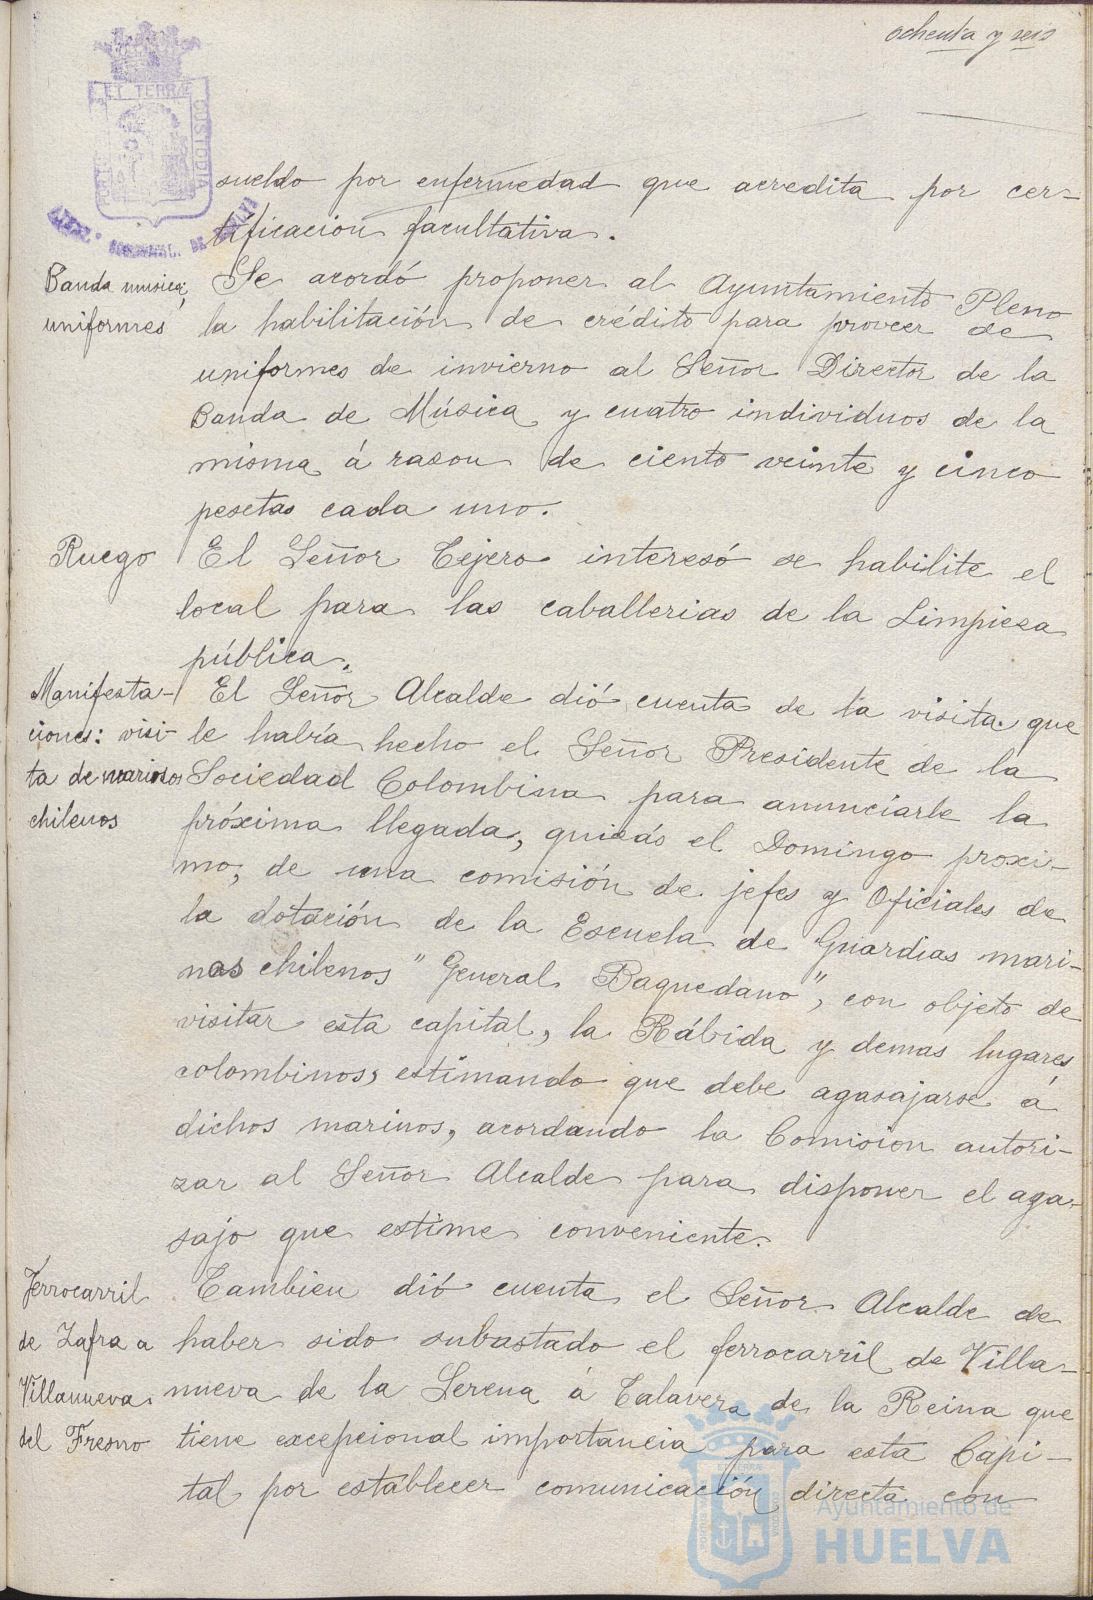 ochenta y seis
ET TERRÆ
CUSTODIA
sueldo por enfermedad que acredita por cer-
tificación facultativa.
Banda musica;
uniformes
Se acordó proponer al Ayuntamiento Pleno
la habilitación de crédito para proveer de
uniformes de invierno al Señor Director de la
Banda de Música y cuatro individuos de la
misma á razon de ciento veinte y cinco
pesetas cada uno.
Ruego
El Señor Tejero interesó se habilite el
local para las caballerias de la Limpieza
pública.
Manifesta-
ciones: visi-
ta de marinos
chilenos
El Señor Alcalde dió cuenta de la visita que
le había hecho el Señor Presidente de la
Sociedad Colombina para anunciarle la
próxima llegada, quizás el Domingo proxi-
mo, de una comisión de jefes y Oficiales de
la dotación de la Escuela de Guardias mari-
nas chilenos "General Baquedano", con objeto de
visitar esta capital, la Rábida y demas lugares
colombinos, estimando que debe agasajarse á
dichos marinos, acordando la Comision autori-
zar al Señor Alcalde para disponer el aga-
sajo que estime conveniente.
Ferrocarril
de Zafra a
Villanueva
del Fresno
Tambien dió cuenta el Señor Alcalde de
haber sido subastado el ferrocarril de Villa-
nueva de la Serena á Talavera de la Reina que
tiene excepcional importancia para esta Capi-
tal por establecer comunicación directa con
Ayuntamiento de
HUELVA